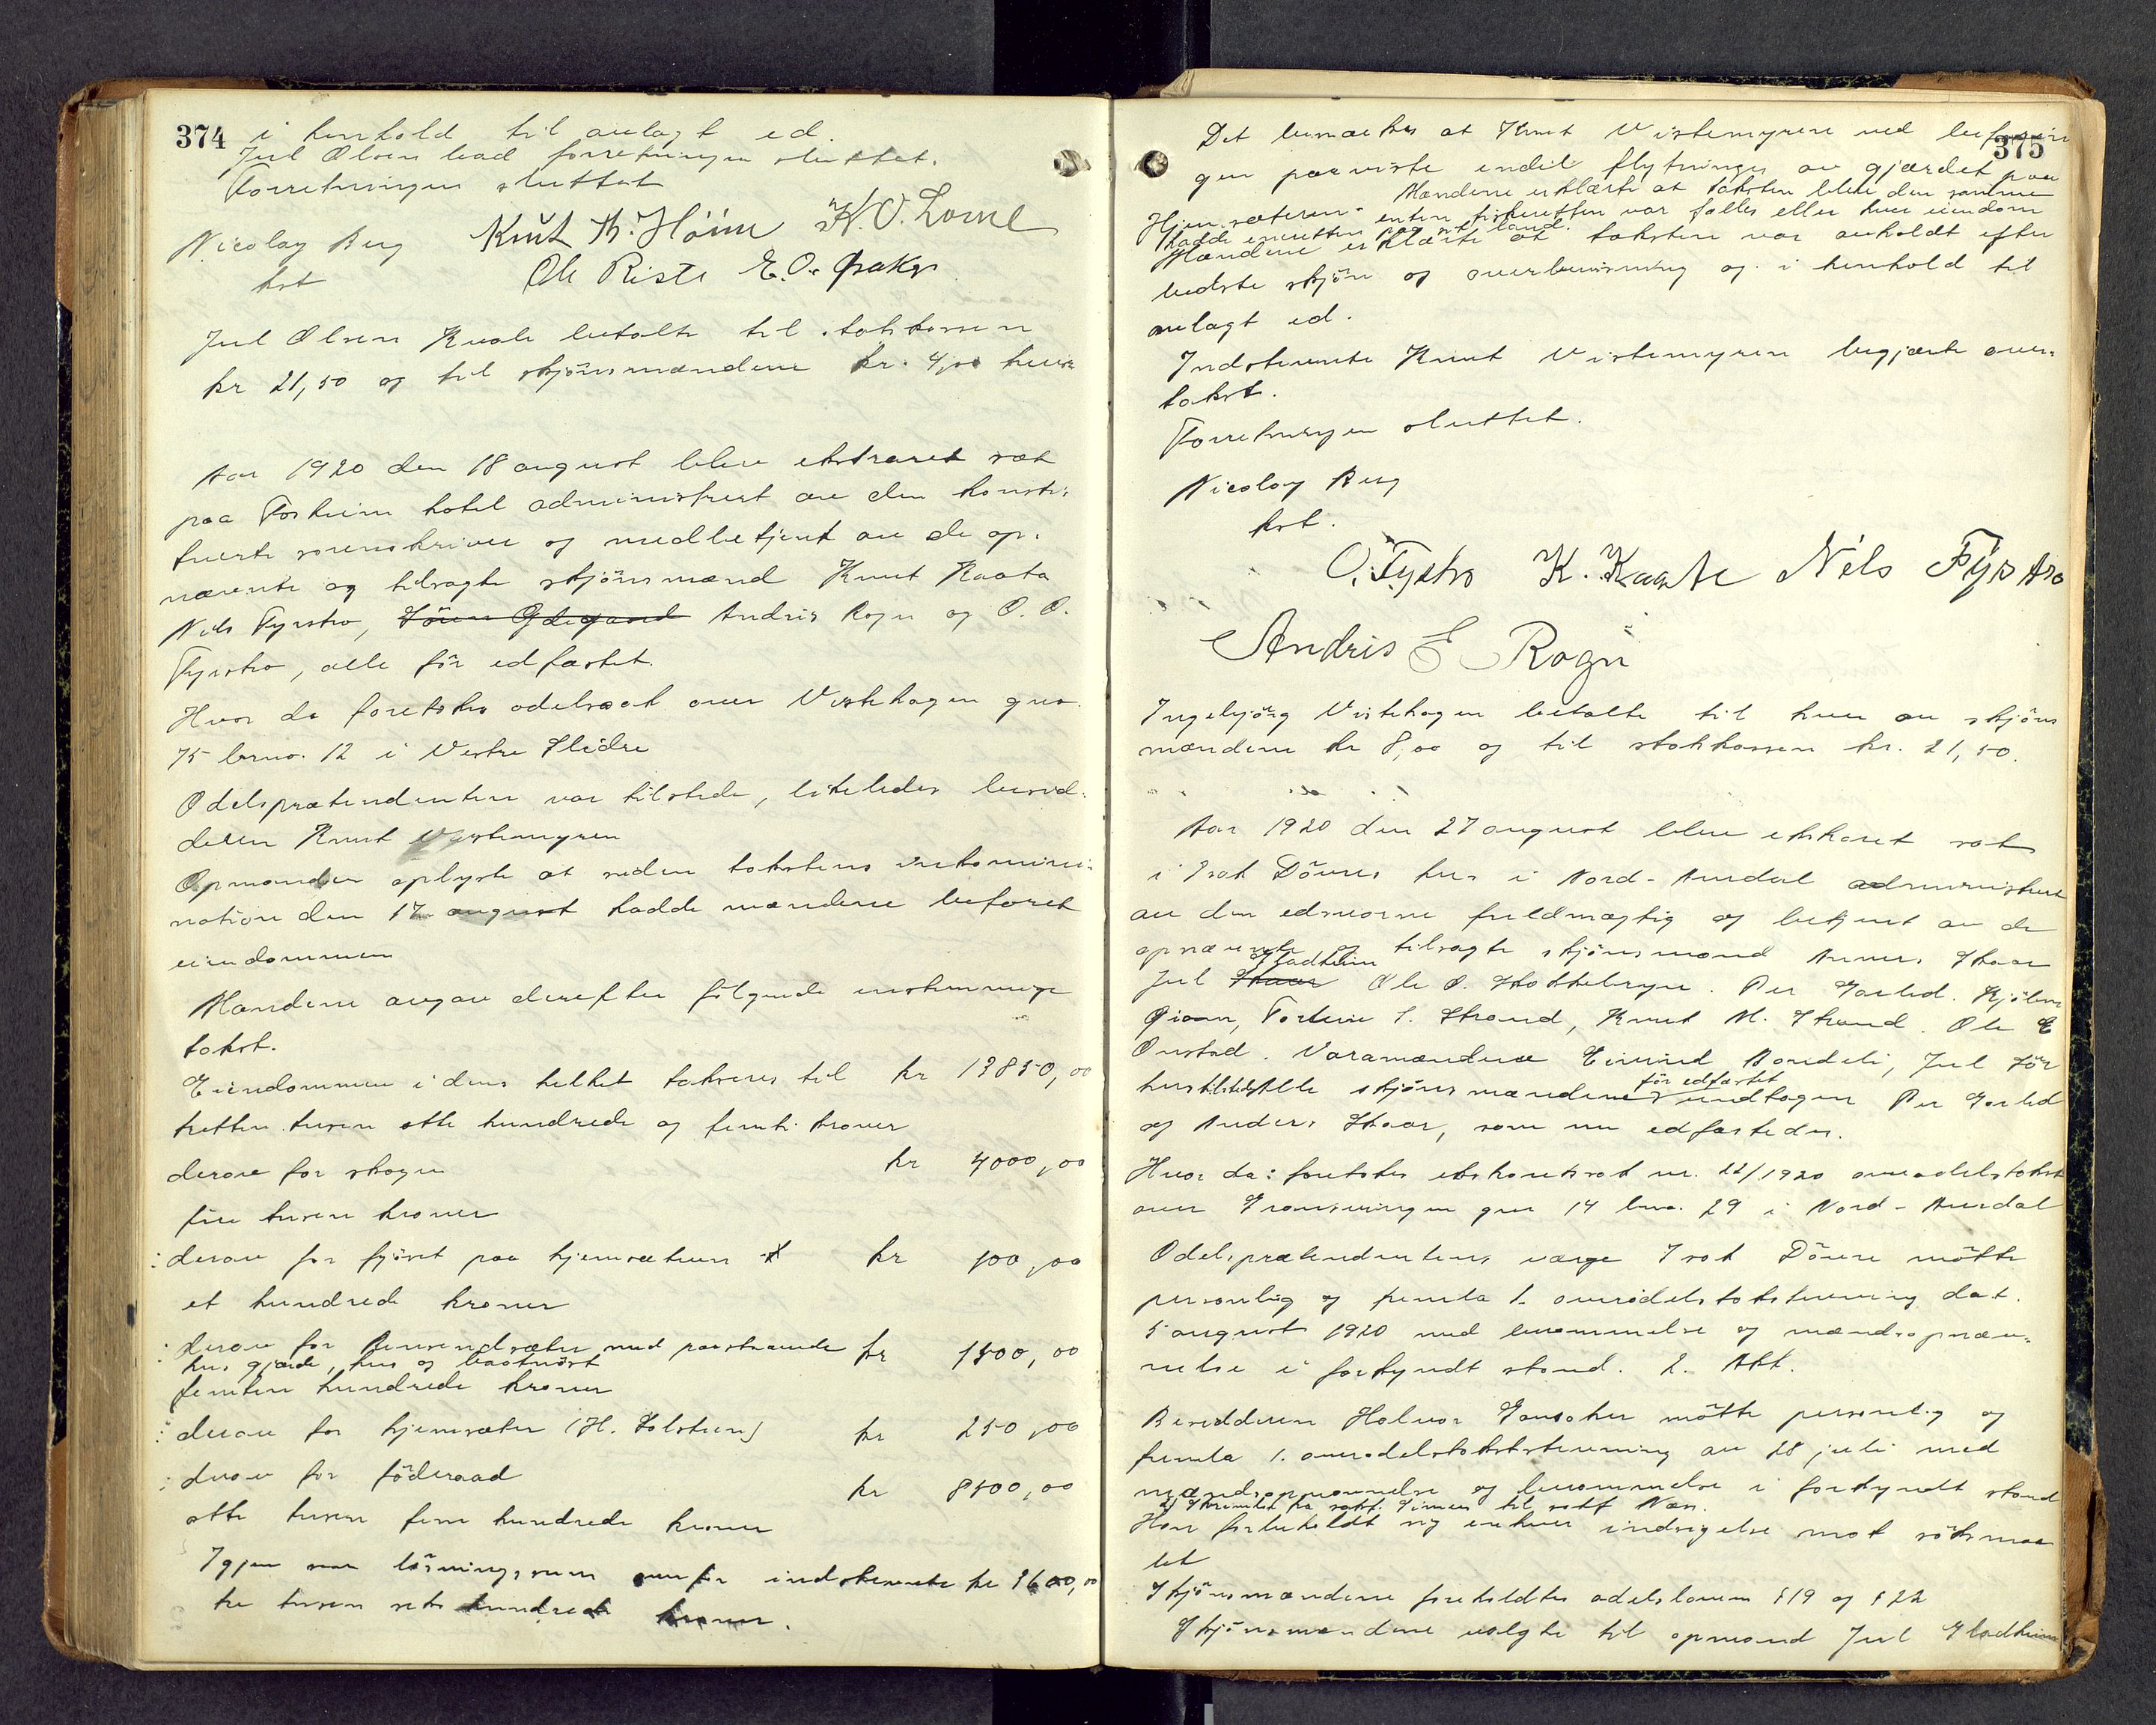 374
i henhold til avlagt ed.
Jul Olsen bad forretningen sluttet.
Forretningen sluttet
Nicolay Berg Knut Th. Höim K. O. Lome
kst Ole Riste E. O.
Jul Olsen Kvale betalte til stakkassen
kr 21,50 og til skjönsmændene kr. 4,00 hver
Aar 1920 den 18 august blev ekstraret sat
paa Fosheim hotel administrert av den konsti-
tuerte sorenskriver og medbetjent av de op-
nævnte og tilsagte skjönsmænd Knut Kaata
Nils Fystro, Sören Ödegaard Andris Rogn og O. O.
Fystro, alle för edfæstet.
Hvor da foretokes odelssak over Vistehagen gno.
75 brno. 12 i Vestre Slidre
Odelsprætendenten var tilstede, likeledes besid-
deren Knut Vistemyren
Opmanden oplyste at siden takstens inkamina-
nation den 17 august hadde mændene befaret
eiendommen
Mændene avgav derefter fölgende enstemmige
takst.
Eiendommen i dens helhet takseres til kr 13850,00
tretten tusen otte hundrede og femti kroner
derav for skogen kr 4000,00
fire tusen kroner
: derav for fjöset paa hjemsæteren kr 100,00
et hundrede kroner
: derav for sæter med paastaaende kr 1500,00
hus gjærde, hus og baatnöst
femten hundrede kroner
: derav for hjemsæter (H. Solstuen) kr 250,00
: derav for föderaad kr 8500,00
otte tusen fem hundrede kroner
Igjen som lösningssum overfor indstevnte kr 3600,00
tre tusen seks hundrede kroner.
375
Det bemærkes at Knut Vistemyren ved befarin
gen paaviste endel flytninger av gjærdet paa
Hjemsæteren. Mændene erklærte at taksten blev den samme
enten fiskeretten var fælles eller hver eiendom
hadde eneretten for sit land.
Mændene erklærte at taksten var avholdt efter
bedste skjön og overbevisning og i henhold til
avlagt ed.
Indstevnte Knut Vistemyren begjærte over-
takst.
Forretningen sluttet.
Nicolay Berg
kst.
O. Fystro K. Kaate Nils Fystro
Andris E Rogn
Ingebjörg Vistehagen betalte til hver av skjöns
mændene kr 8,00 og til stakkassen kr. 21,50.
Aar 1920 den 27 august blev ekstraret sat
i Isak Dövres hus i Nord-Aurdal administrert
av den edsvorne fuldmægtig og betjent av de
opnævnte og tilsagte skjönsmænd Anders Skaar
Jul Skaar Gladheim Ole O. Per Garlid. Kjölv
Torleiv S. Strand, Knut M. Strand. Ole E
Onstad. Varamændene Eivind Aondeli, Jul Sör
hus tilstede. Alle skjönsmændene för edfæstet undtagen Per Garlid
og Anders Skaar, som nu edfæstedes.
Hvor da: foretokes ekstraretssak nr. 22/1920 overodelstakst
over gnr 14 bno. 29 i Nord-Aurdal
Odelsprætendentens værge Isak Dövre mötte
personlig og fremla 1. overodelstakststevning dat.
5 august 1920 med berammelse og mændsopnæv-
nelse i forkyndt stand. 2. Akt.
Besidderen Halvor mötte personlig og
fremla 1. overodelstakststevning av 28 juli med
mændsopnævnelse og berammelse i forkyndt stand
2) Skrivelse fra sakf. til sakf Næss.
Han forbeholdt sig enhver indsigelse mot söksmaa
let
Skjönsmændene foreholdtes odelsloven § 19 og § 22
Skjönsmændene valgte til opmand Jul Gladheim